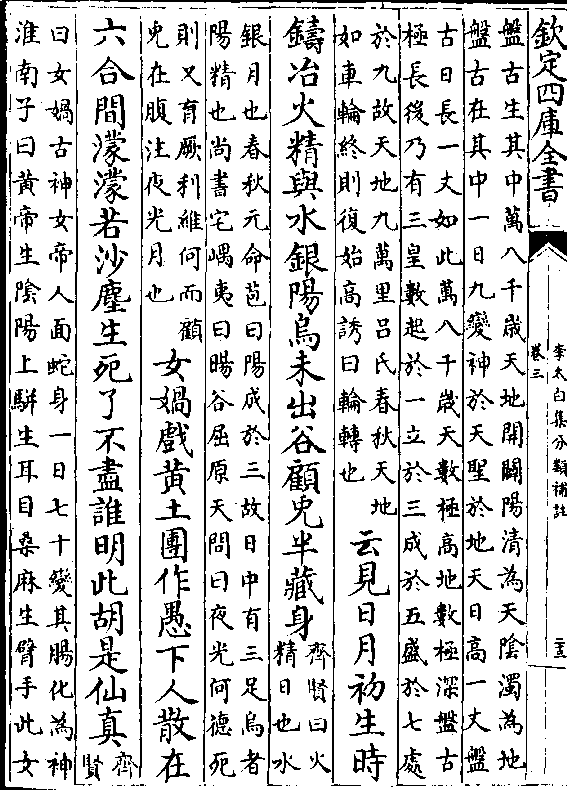 欽定四庫全書
李太白集分類補註
卷三
盤古生其中萬八千歳天地開闢陽清為天隂濁為地
盤古在其中一日九變神於天聖於地天日高一丈盤
古日長一丈如此萬八千歳天數極高地數極深盤古
極長後乃有三皇數起於一立於三成於五盛於七處
於九故天地九萬里呂氏春秋天地
如車輪終則復始高誘曰輪轉也
云見日月初生時
鑄冶火精與水銀陽烏未出谷顧兎半藏身
齊賢曰火
精日也水
銀月也春秋元命苞曰陽成於三故日中有三足烏者
陽精也尚書宅嵎夷曰暘谷屈原天問曰夜光何德死
則又育厥利維何而顧
兎在腹注夜光月也
女媧戲黄土團作愚下人散在
六合間濛濛若沙塵生死了不盡誰明此胡是仙真
齊
賢
曰女媧古神女帝人面蛇身一日七十變其腸化為神
淮南子曰黄帝生隂陽上駢生耳目桑麻生臂手此女